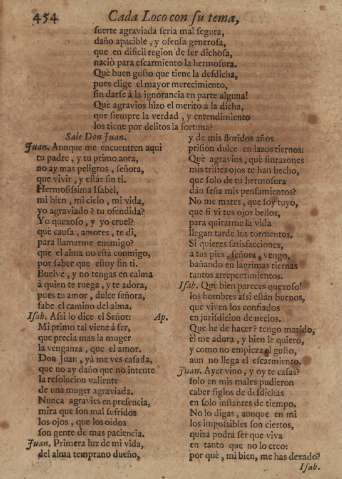 454
Cada Loco con su tema,
suerte agraviada seria mal segura,
daño apacible, y ofensa generosa,
que en dificil region de ser dichosa,
naciò para escarmiento la hermosura.
Què buen gusto que tiene la desdicha,
pues elige el mayor merecimiento,
sin darse à la ignorancia en parte alguna!
Què agravios hizo el merito à la dicha,
que siempre la verdad, y entendimiento
los tiene por delitos la fortuna?
Sale Don Juan.
Juan. Aunque me encuentren aqui
tu padre, y tu primo aora,
no ay mas peligros, señora,
que vivir, y estàr sin ti.
Hermosissima Isabel,
mi bien, mi cielo, mi vida,
yo agraviado? tu ofendida?
Yo quexoso, y yo cruel?
què causa, amores, te dì,
para llamarme enemigo?
què el alma no està conmigo,
por saber que estoy sin ti.
Buelve, y no tengas en calma
à quien te ruega, y te adora,
pues tu amor, dulce señora,
sabe el camino del alma.
Isab. Assi lo dice el Señor: Ap.
Mi primo tal viene à ser,
que precia mas la muger
la venganza, que el amor.
Don Juan, yà me vès casada,
que no ay daño que no intente
la resolucion valiente
de una muger agraviada.
Nunca agravies en presencia,
mira que son mal sufridos
los ojos, que los oidos
son gente de mas paciencia.
Juan. Primera luz de mi vida,
del alma temprano dueño,
y de mis floridos años
prision dulce en lazos tiernos:
Què agravios, què sinrazones
mis tristes ojos te han hecho,
que solo de tu hermosura
dàn señas mis pensamientos?
No me mates, que soy tuyo,
que si vì tus ojos bellos,
para quitarme la vida
llegan tarde los tormentos.
Si quieres satisfacciones,
à tus pies, señora, vengo,
bañando en lagrimas tiernas
tantos arrepentimientos.
Isab. Què bien pareces quexoso!
los hombres assi estàn buenos,
que viven los confiados
en jurisdicion de necios.
Què he de hacer? tengo marido,
èl me adora, y bien le quiero,
y como no empieza el gusto,
aun no llega el escarmiento.
Juan. Ayer vino, y oy te casas?
solo en mis males pudieron
caber siglos de desdichas
en solo instantes de tiempo.
No lo digas, aunque en mì
los impossibles son ciertos,
quizà podrà ser que viva
en tanto que no lo creo:
por què, mi bien, me has dexado?
Isab.